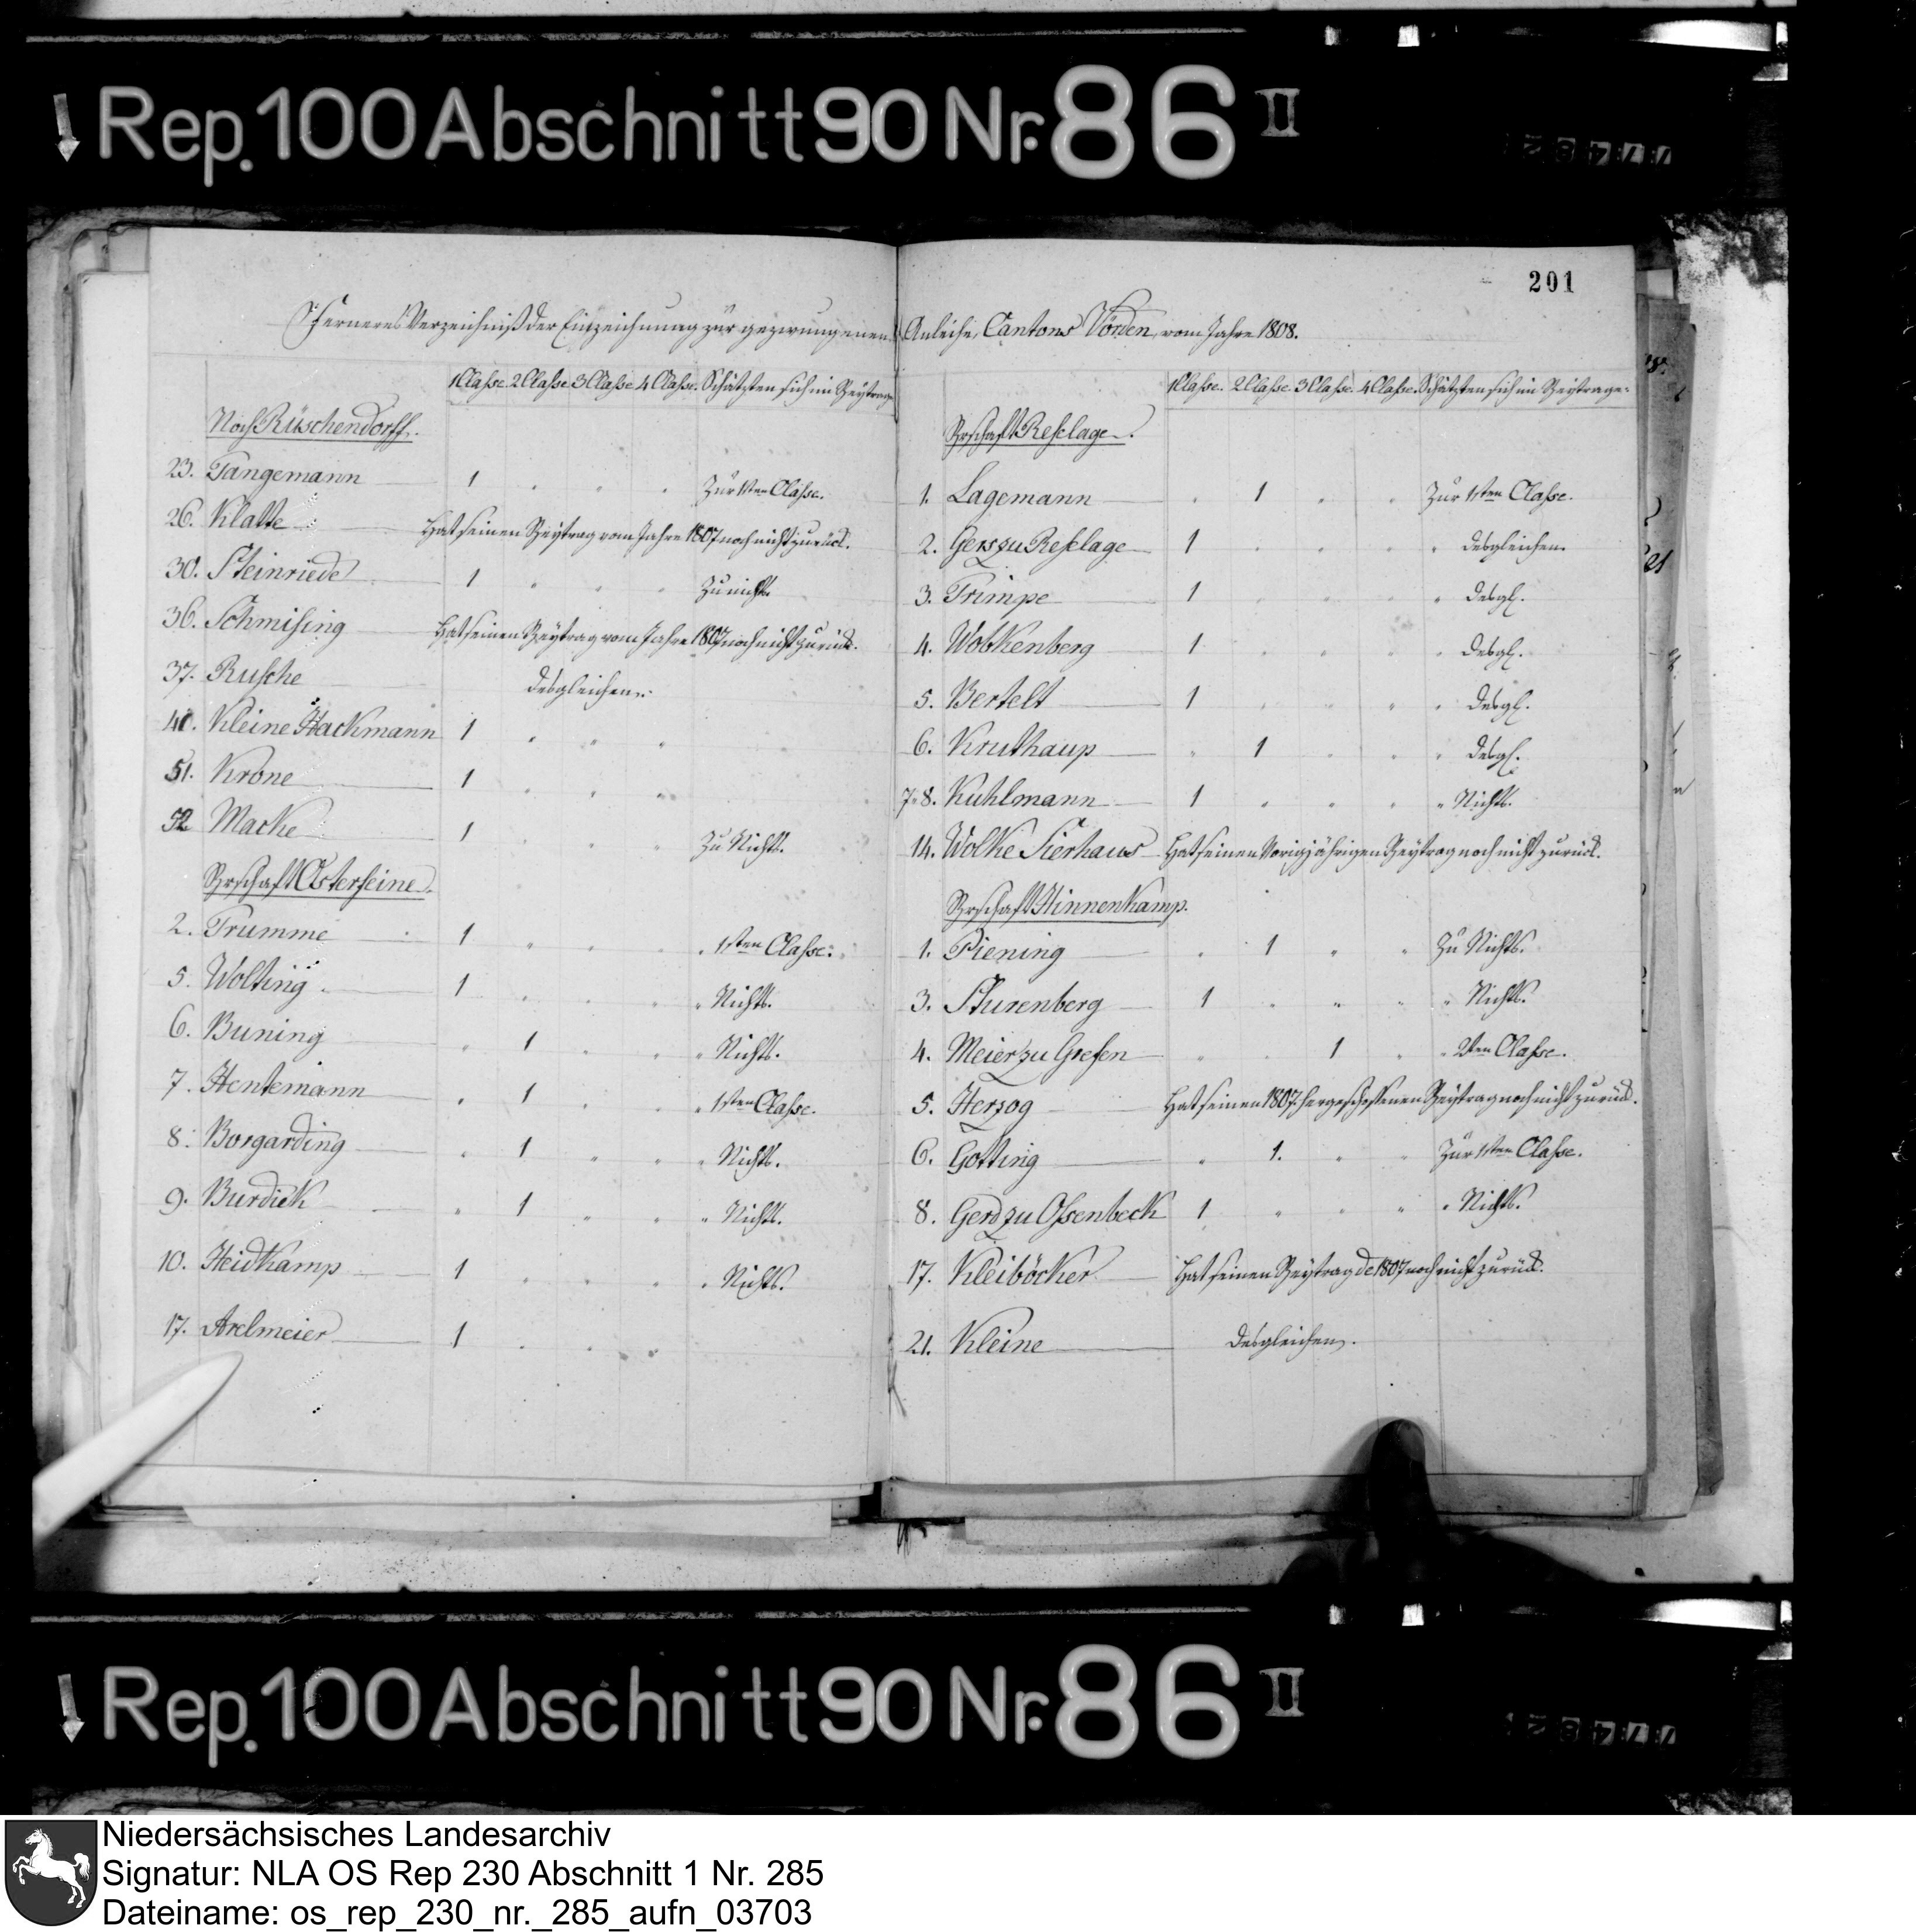 Rep. 100 Abschnitt 90 Nr. 86 II
201
Ferneres Verzeichniß der Einzeichnung zur gezwungenen Anleihe, Cantons Vörden, vom Jahre 1808.
1 Classe. 2 Classe 3 Classe 4 Classe. Schätzten sich im Beytrage
Noch Rüschendorff.
23. Tangemann 1 " " " Zur 1sten Classe.
26. Klatte Hat seinen Beytrag vom Jahre 1807 noch nicht zurück.
30. Steinriede 1 " " " Zu nichts
36. Schmising Hat seinen Beytrag vom Jahre 1807 noch nicht zurück.
37. Rusche desgleichen.
40. Kleine Hackmann 1 " " "
51. Krone 1 " " "
52 Macke 1 " " " Zu Nichts.
Brschaft Osterfeine.
2. Trumme 1 " " " " 1sten Classe.
5. Wolting 1 " " " " Nichts.
6. Buning " 1 " " " Nichts.
7. Hentemann " 1 " " " 1sten Classe.
8. Borgarding " 1 " " " Nichts.
9. Burdiek " 1 " " " Nichts.
10. Heidkamp 1 " " " " Nichts.
17. Arelmeier 1 " " "
1 Classe. 2 Classe 3 Classe. 4 Classe. Schätzten sich im Beytrage
Brschaft Reselage.
1. Lagemann " 1 " " Zur 1sten Classe.
2. Gers zu Reselage 1 " " " " desgleichen
3. Trimpe 1 " " " " desgl.
4. Wobkenberg 1 " " " " desgl.
5. Bertelt 1 " " " " desgl.
6. Kruthaup " 1 " " " desgl.
7 " 8. Kuhlmann 1 " " " " Nichts.
14. Wolke Sierhaus Hat seinen vorigjährigen Beytrag noch nicht zurück.
Brschaft Hinnenkamp.
1. Piening " 1 " " Zu Nichts.
3. Sturenberg 1 " " " " Nichts.
4. Meier zu Grefen " " 1 " " 2ten Classe.
5. Herzog Hat seinen 1807. hergeschossenen Beytrag noch nicht zurück.
6. Gotting " 1. " " Zur 1sten Classe.
8. Gerd zu Ossenbeck 1 " " " " Nichts.
17. Kleiböcker Hat seinen Beytrag de 1807 noch nicht zurück.
21. Kleine desgleichen.
Rep. 100 Abschnitt 90 Nr. 86 II
Niedersächsisches Landesarchiv
Signatur: NLA OS Rep 230 Abschnitt 1 Nr. 285
Dateiname: os_rep_230_nr._285_aufn_03703